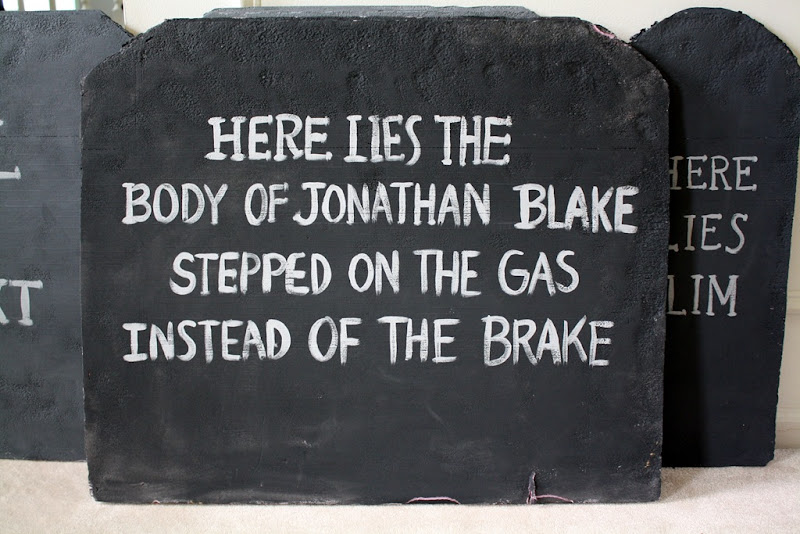 HERE LIES THE
BODY OF JONATHAN BLAKE
STEPPED ON THE GAS
INSTEAD OF THE BRAKE
HERE
LIES